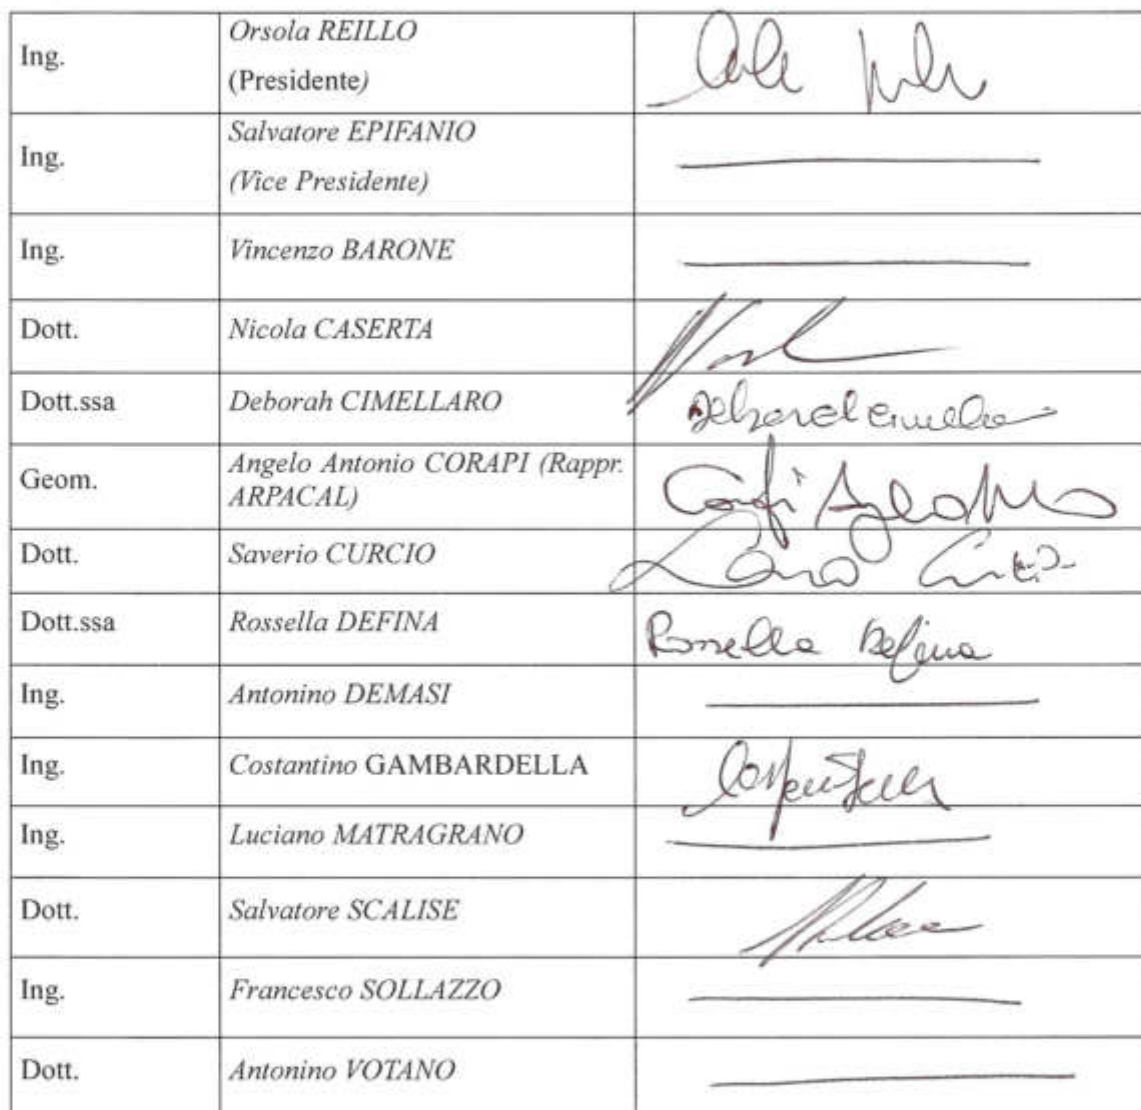 Ing.
Orsola REILLO
(Presidente)
Ing.
Salvatore EPIFANIO
(Vice Presidente)
Ing.
Vincenzo BARONE
Dott.
Nicola CASERTA
Dott.ssa
Deborah CIMELLARO
Geom.
Angelo Antonio CORAPI (Rappr.
ARPACAL)
Dott.
Saverio CURCIO
Dott.ssa
Rossella DEFINA
Rossella Defina
Ing.
Antonino DEMASI
Ing.
Costantino GAMBARDELLA
Ing.
Luciano MATRAGRANO
Dott.
Salvatore SCALISE
Ing.
Francesco SOLLAZZO
Dott.
Antonino VOTANO